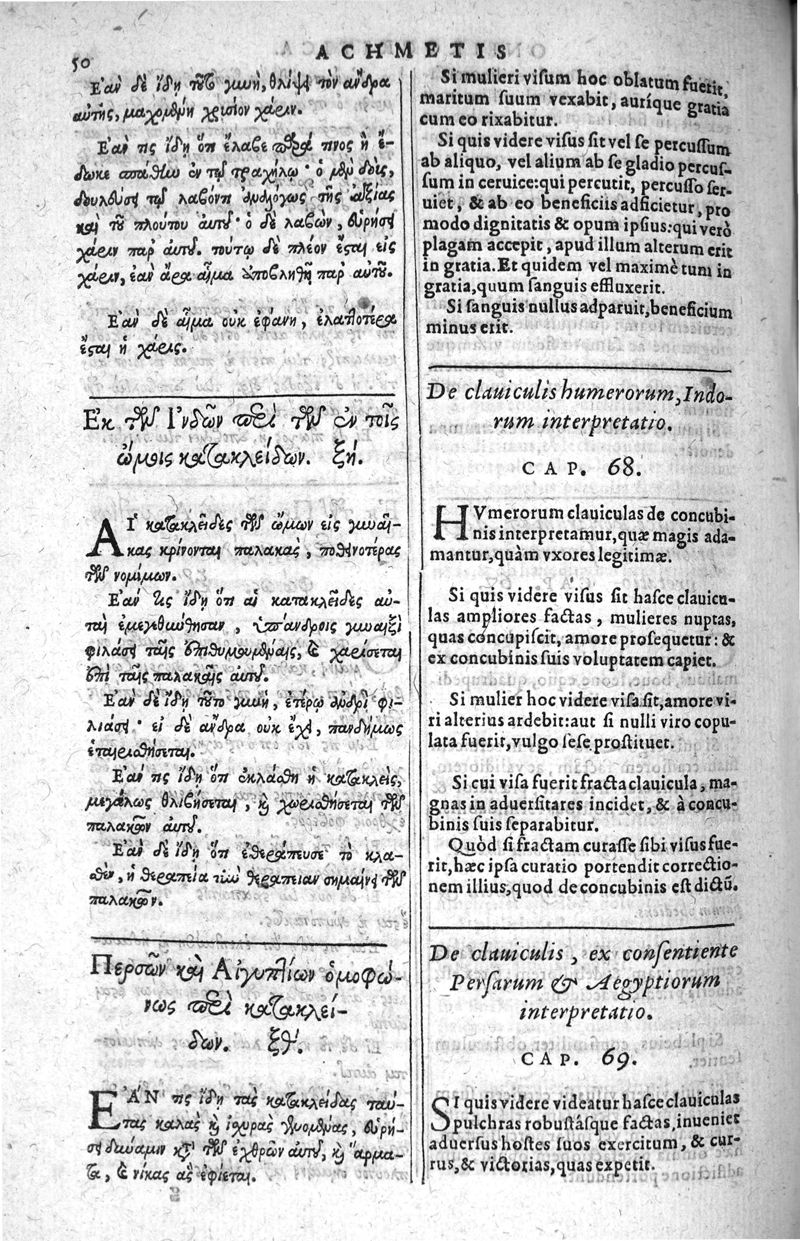 50
ACHMETIS
Ἐὰν δὲ ἴδῃ τοῦτο γυνὴ, θλίψει τὸν ἄνδρα
αὐτῆς, μαχομένη χρυσίου χάριν.
Ἐάν τις ἴδῃ ὅτι ἔλαβε παρά τινος ἢ ἔ-
δωκε σπαθίῳ ἐν τῷ τραχήλῳ· ὁ μὲν δοὺς,
δουλεύσει τῷ λαβόντι ἀναλόγως τῆς ἀξίας
καὶ τοῦ πλούτου αὐτοῦ· ὁ δὲ λαβὼν, εὑρήσει
χάριν παρ' αὐτοῦ. τούτῳ δὲ πλέον ἔσται εἰς
χάριν, ἐὰν ἄρα αἷμα ὑποβληθῇ παρ' αὐτοῦ.
Ἐὰν δὲ αἷμα οὐκ ἐφάνη, ἐλαττοτέρα
ἔσται ἡ χάρις.
Ἐκ τῶν Ἰνδῶν περὶ τῶν ἐν τοῖς
ὤμοις κατακλείδων. ξή.
ΑἹ κατακλεῖδες τῶν ὤμων εἰς γυναῖ-
κας κρίνονται παλλακὰς, ποθεινοτέρας
τῶν νομίμων.
Ἐάν τις ἴδῃ ὅτι αἱ κατακλεῖδες αὐ-
ται ἐμεγεθύνθησαν, ὑπάνδροις γυναιξὶ
φιλιάσει ταῖς ἐπιθυμουμέναις, καὶ χαρίσεται
ἐπὶ ταῖς παλακαῖς αὐτοῦ.
Ἐὰν δὲ ἴδῃ τοῦτο γυνὴ, ἑτέρῳ ἀνδρὶ φι-
λιάσει· εἰ δὲ ἄνδρα οὐκ ἔχει, πανδήμως
ἑταιρισθήσεται.
Ἐάν τις ἴδῃ ὅτι ἐκλάσθη ἡ κατακλεὶς,
μεγάλως θλιβήσεται, καὶ χωρισθήσεται τῶν
παλακῶν αὐτοῦ.
Ἐὰν δὲ ἴδῃ ὅτι ἐθεράπευσε τὸ κλα-
σθὲν, ἡ θεραπεία τὴν θεραπείαν σημαίνει τῶν
παλακῶν.
Περσῶν καὶ Αἰγυπτίων ὁμοφώ-
νως περὶ κατακλεί-
δων. ξθ'.
ἘΑΝ τις ἴδῃ τὰς κατακλεῖδας ταύ-
τας καλὰς καὶ ἰσχυρὰς γενομένας, εὑρή-
σει δύναμιν κατὰ τῶν ἐχθρῶν αὐτοῦ, καὶ ἅρμα-
τα, καὶ νίκας ἃς ἐφίεται.
Si mulieri visum hoc oblatum fuerit,
maritum suum vexabit, aurique gratia
cum eo rixabitur.
Si quis videre visus sit vel se percussum
ab aliquo, vel alium ab se gladio percus-
sum in ceruice: qui percutit, percusso ser-
uiet, & ab eo beneficiis adficietur, pro
modo dignitatis & opum ipsius: qui verò
plagam accepit, apud illum alterum erit
in gratia. Et quidem vel maximè tum in
gratia, quum sanguis effluxerit.
Si sanguis nullus adparuit, beneficium
minus erit.
De clauiculis humerorum, Indo-
rum interpretatio.
CAP. 68.
HVmerorum clauiculas de concubi-
nis interpretamur, quæ magis ada-
mantur, quàm vxores legitimæ.
Si quis videre visus sit hasce clauicu-
las ampliores factas, mulieres nuptas,
quas concupiscit, amore prosequetur: &
ex concubinis suis voluptatem capiet.
Si mulier hoc videre visa sit, amore vi-
ri alterius ardebit: aut si nulli viro copu-
lata fuerit, vulgo sese prostituet.
Si cui visa fuerit fracta clauicula, ma-
gnas in aduersitates incidet, & à concu-
binis suis separabitur.
Quòd si fractam curasse sibi visus fue-
rit, hæc ipsa curatio portendit correctio-
nem illius, quod de concubinis est dictū.
De clauiculis, ex consentiente
Persarum & Aegyptiorum
interpretatio.
CAP. 69.
SI quis videre videatur hasce clauiculas
pulchras robustásque factas, inueniet
aduersus hostes suos exercitum, & cur-
rus, & victorias, quas expetit.